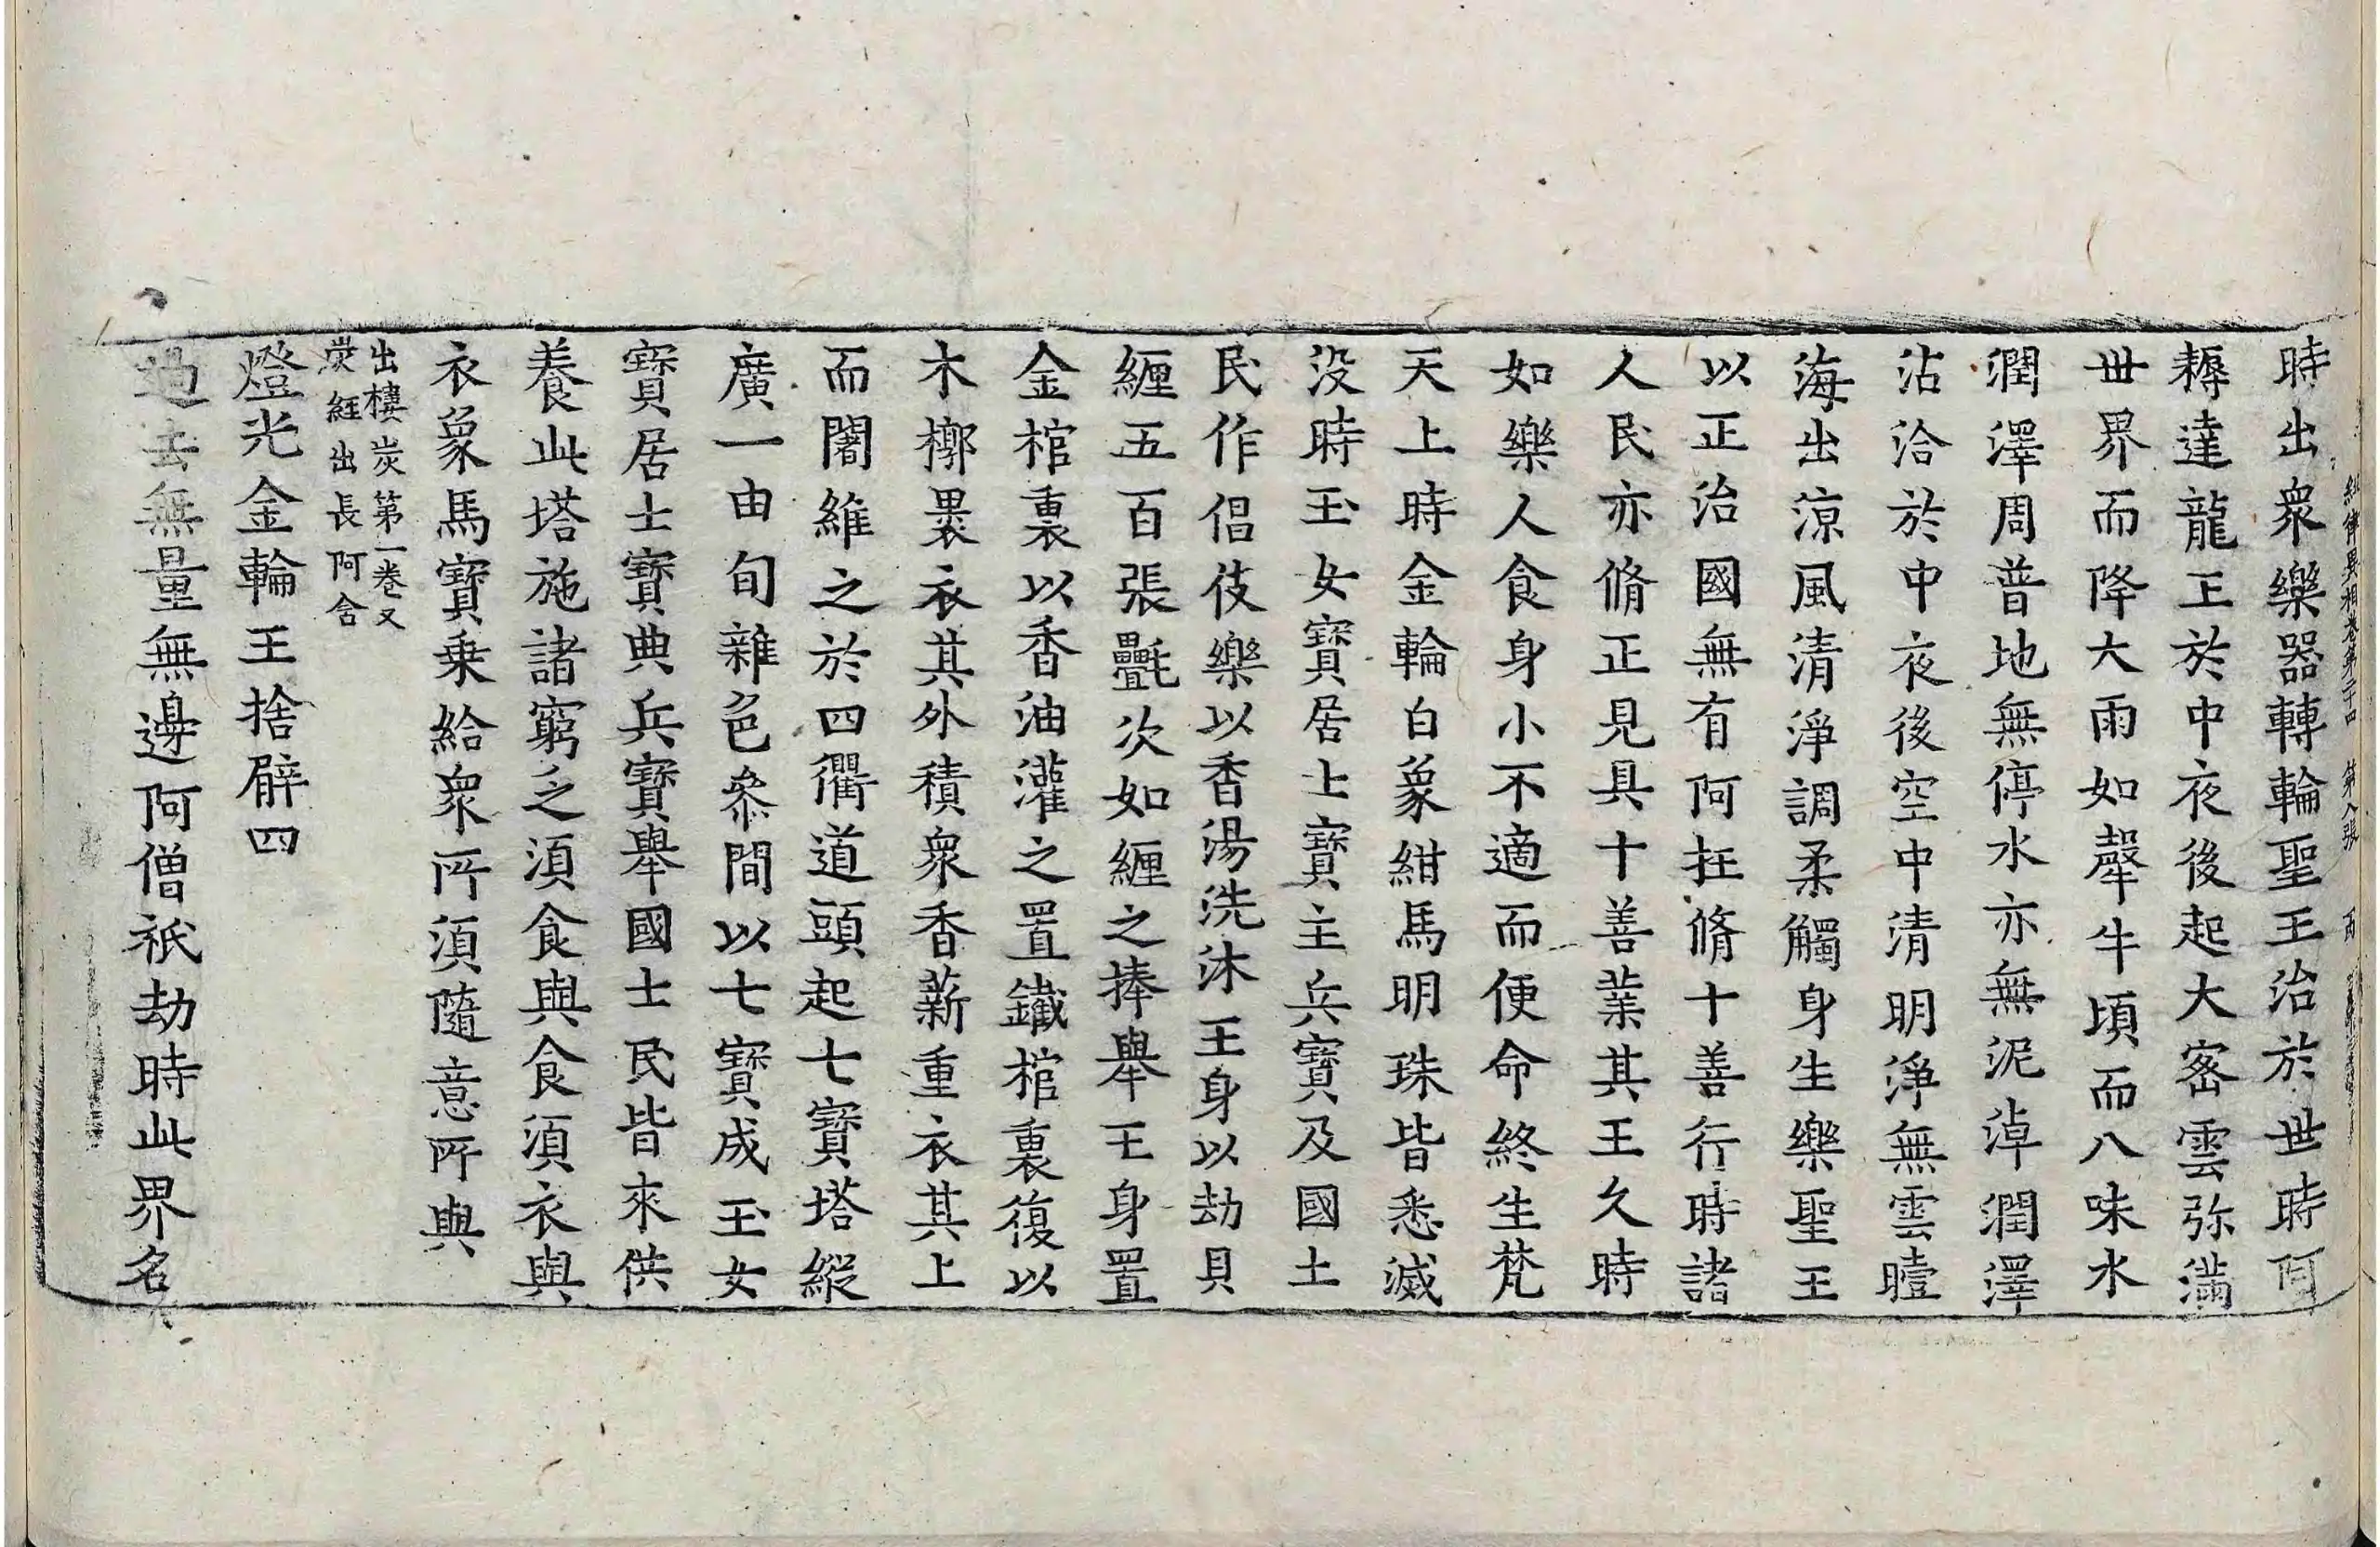 經律異相卷第二十四 第八張 丙
時出衆樂器轉輪聖王治於世時阿
耨達龍王於中夜後起大密雲弥滿
世界而降大雨如𤛓牛頃而八味水
潤澤周普地無停水亦無泥淖潤澤
沾洽於中夜後空中清明淨無雲曀
海出涼風清淨調柔觸身生樂聖王
以正治國無有阿抂脩十善行時諸
人民亦脩正見具十善業其王久時
如樂人食身小不適而便命終生梵
天上時金輪白象紺馬明珠皆悉滅
没時玉女寶居士寶主兵寶及國土
民作倡伎樂以香湯洗沐王身以劫貝
纒五百張㲲次如纒之捧舉王身置
金棺裏以香油灌之置鐵棺裏復以
木槨褁衣其外積衆香薪重衣其上
而闍維之於四衢道頭起七寶塔縱
廣一由旬雜色叅間以七寶成玉女
寶居士寶典兵寶舉國士民皆來供
養此塔施諸窮乏須食與食須衣與
衣象馬寶乗給衆所須隨意所與
出樓炭第一卷又
炭經出長阿含
燈光金輪王捨臂四
過去無量無邊阿僧祇劫時此界名